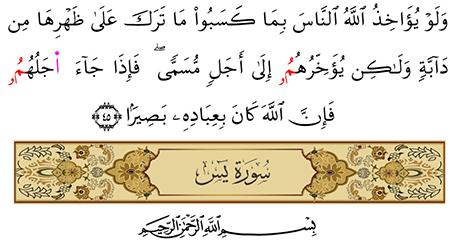 وَلَوْ يُؤَاخِذُ ٱللَّهُ ٱلنَّاسَ بِمَا كَسَبُواْ مَا تَرَكَ عَلَىٰ ظَهْرِهَا مِن
دَآبَّةٖ وَلَٰكِن يُؤَخِّرُهُمُۥ إِلَىٰ أَجَلٖ مُّسَمّٗىۖ فَإِذَا جَآءَ ا۬جَلُهُمُۥ
فَإِنَّ ٱللَّهَ كَانَ بِعِبَادِهِۦ بَصِيرَۢاۖ ٤٥
سُورَةُ يسٓ
بِسْمِ ٱللَّهِ ٱلرَّحْمَٰنِ ٱلرَّحِيمِ